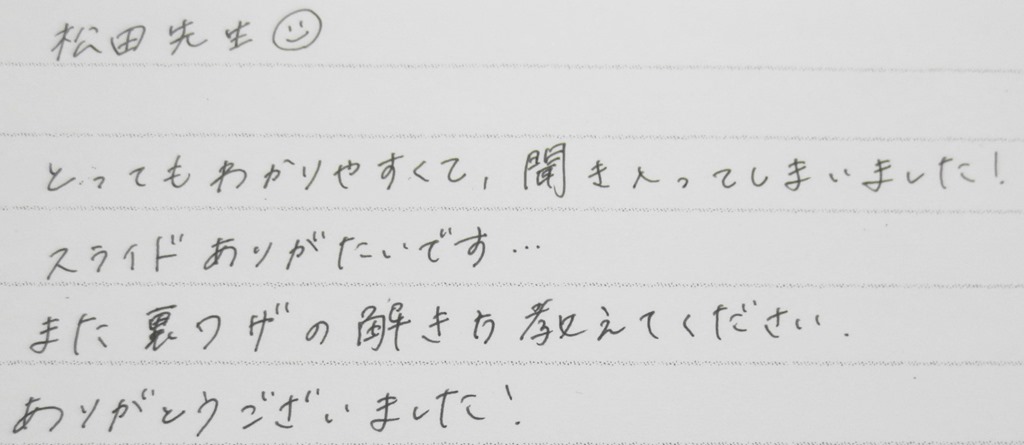 松田先生☺
とってもわかりやすくて, 聞き入ってしまいました!
スライドありがたいです…
また裏ワザの解き方教えてください.
ありがとうございました!